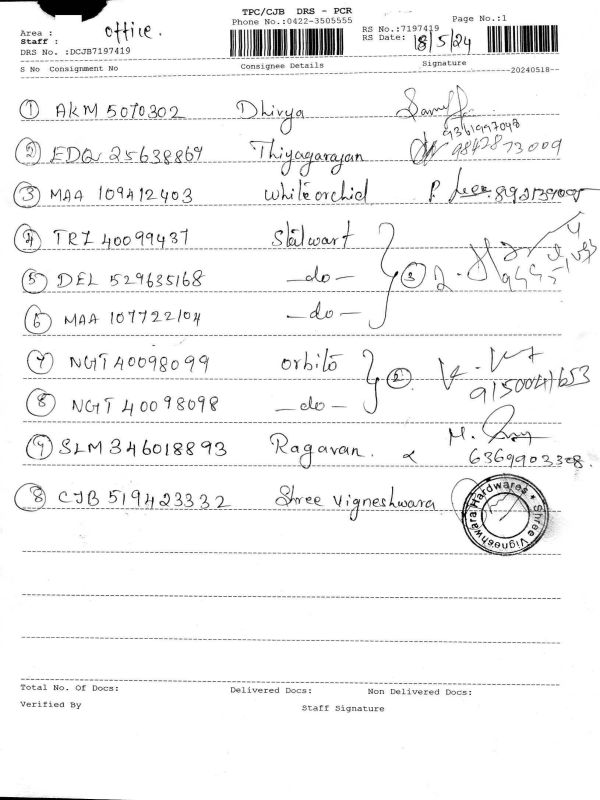 TPC/CJB DRS - PCR
Phone No.:0422-3505555
Page No.:1
Area : office.
RS No.:7197419
Staff :
RS Date: 18/5/24
DRS No. :DCJB7197419
S No Consignment No Consignee Details Signature
--20240518--
① AKM 5070302 Dhivya
9361997048
② EDQ 25638869 Thiyagarajan 9842873009
③ MAA 109412403 White orchid
④ TRZ 40099437 Stalwart
⑤ DEL 529635168 -do- ③
⑥ MAA 107722104 -do-
⑦ NGT 40098099 orbito ②
9150041653
⑧ NGT 40098098 -do-
⑨ SLM 346018893 Ragavan.
6369903328.
⑧ CJB 519423332 Shree Vigneshwara
Shree Vigneshwara Hardwares
Total No. Of Docs: Delivered Docs: Non Delivered Docs:
Verified By Staff Signature